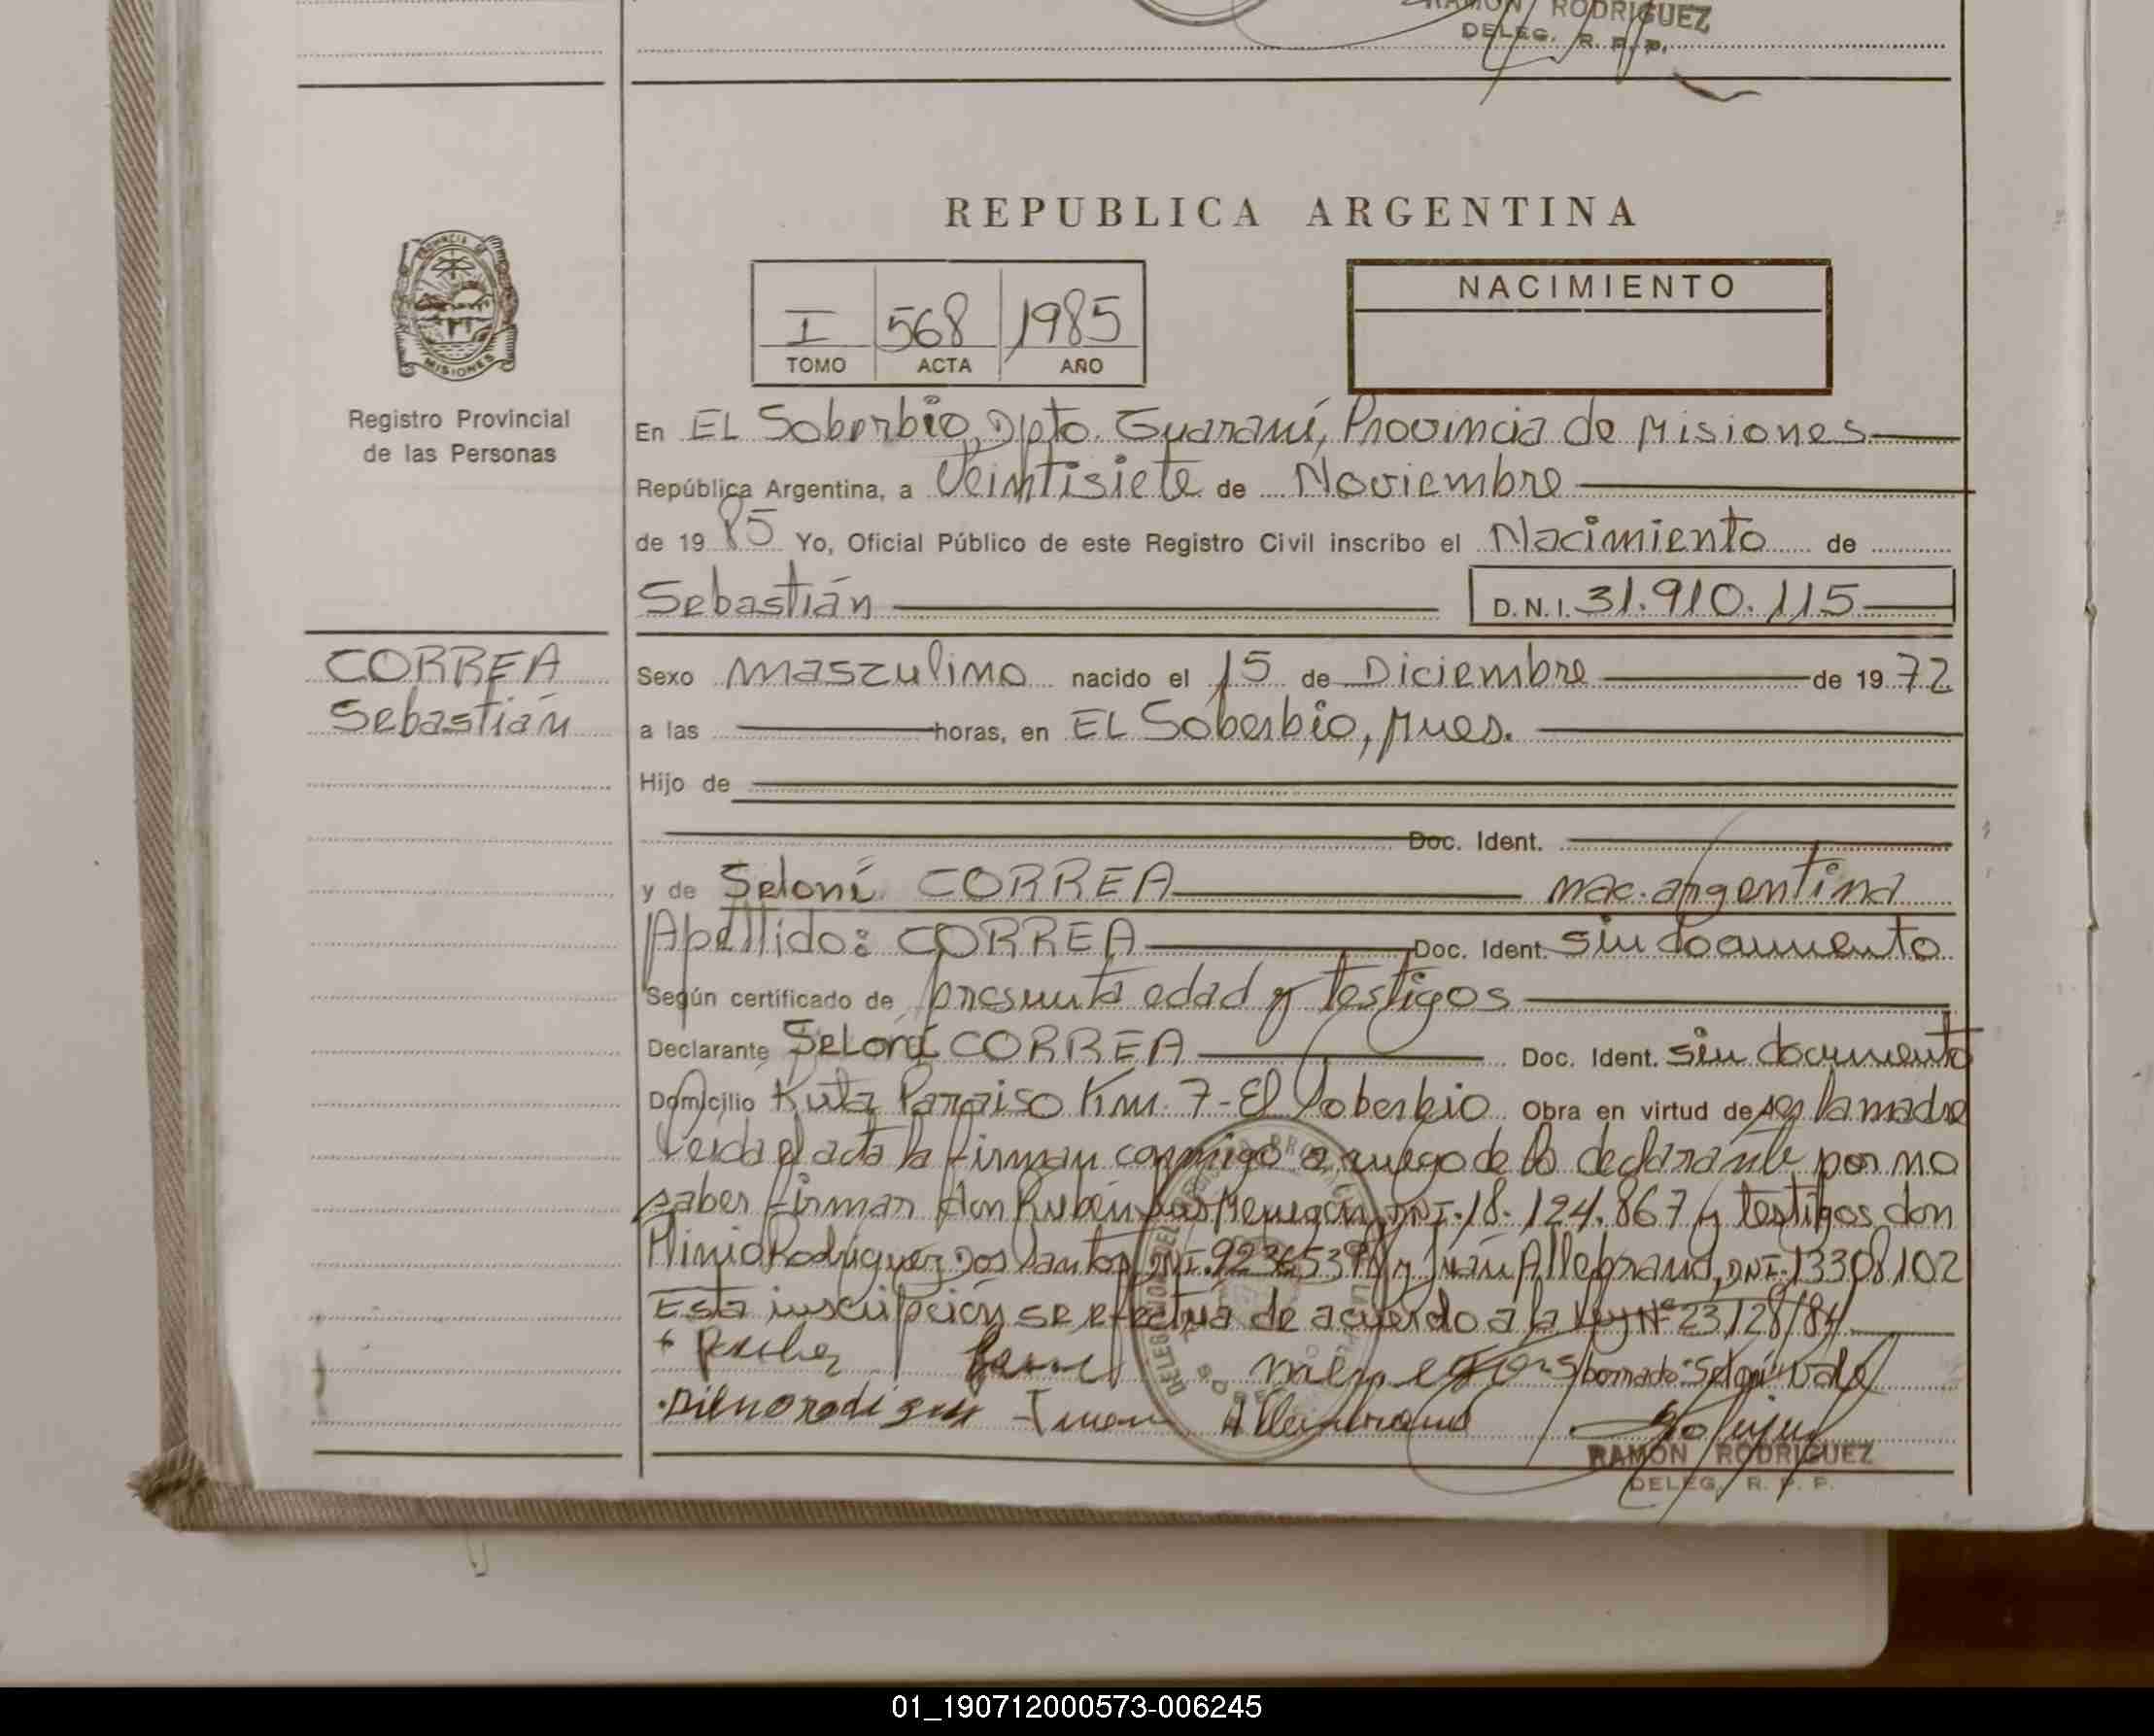 RAMON RODRIGUEZ
DELEG. R. P. P.
REPUBLICA ARGENTINA
PROVINCIA DE
MISIONES
Registro Provincial
de las Personas
I 568 1985
TOMO ACTA AÑO
NACIMIENTO
En EL Soberbio, Dpto. Guaraní, Provincia de Misiones
República Argentina, a Veintisiete de Noviembre
de 19 85 Yo, Oficial Público de este Registro Civil inscribo el Nacimiento de
Sebastián D.N.I. 31.910.115
CORREA
Sebastián
Sexo masculino nacido el 15 de Diciembre de 19 72
a las horas, en EL Soberbio, Mnes.
Hijo de
Doc. Ident.
y de Seloní CORREA nac. argentina
Apellido: CORREA Doc. Ident. sin documento
Según certificado de presunta edad y testigos
Declarante Seloní CORREA Doc. Ident. sin documento
Domicilio Ruta Paraiso Km. 7 - El Soberbio Obra en virtud de ser la madre
Leida el acta la firman conmigo a ruego de la declarante por no
saber firmar don Rubén DNI. 18.124.867 y testigos don
Plinio Rodriguez Dos Santos DNI. y Juan Allebrand, DNI. 13308102
Esta inscripción se efectúa de acuerdo a la Ley Nº 23128/84
borrado: Seloní: vale
Juan
RAMON RODRIGUEZ
DELEG. R. P. P.
01_190712000573-006245